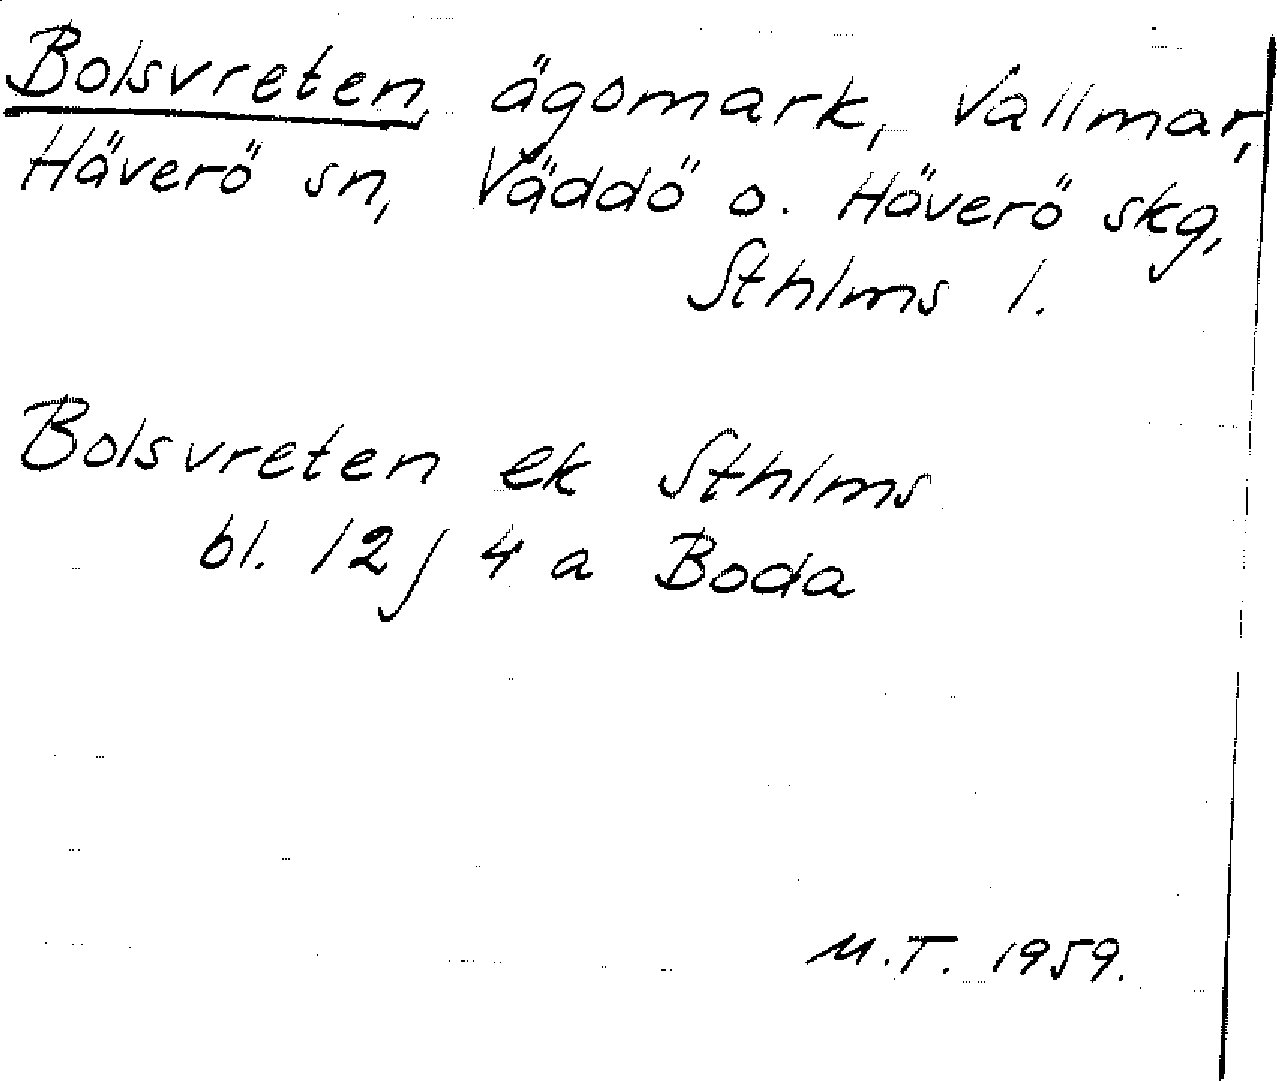 Bolsvreten, ägomark, Vallmar,
Häverö sn, Väddö o. Häverö skg,
Sthlms l.
Bolsvreten ek Sthlms
bl. 12 j 4 a Boda
M.T. 1959.